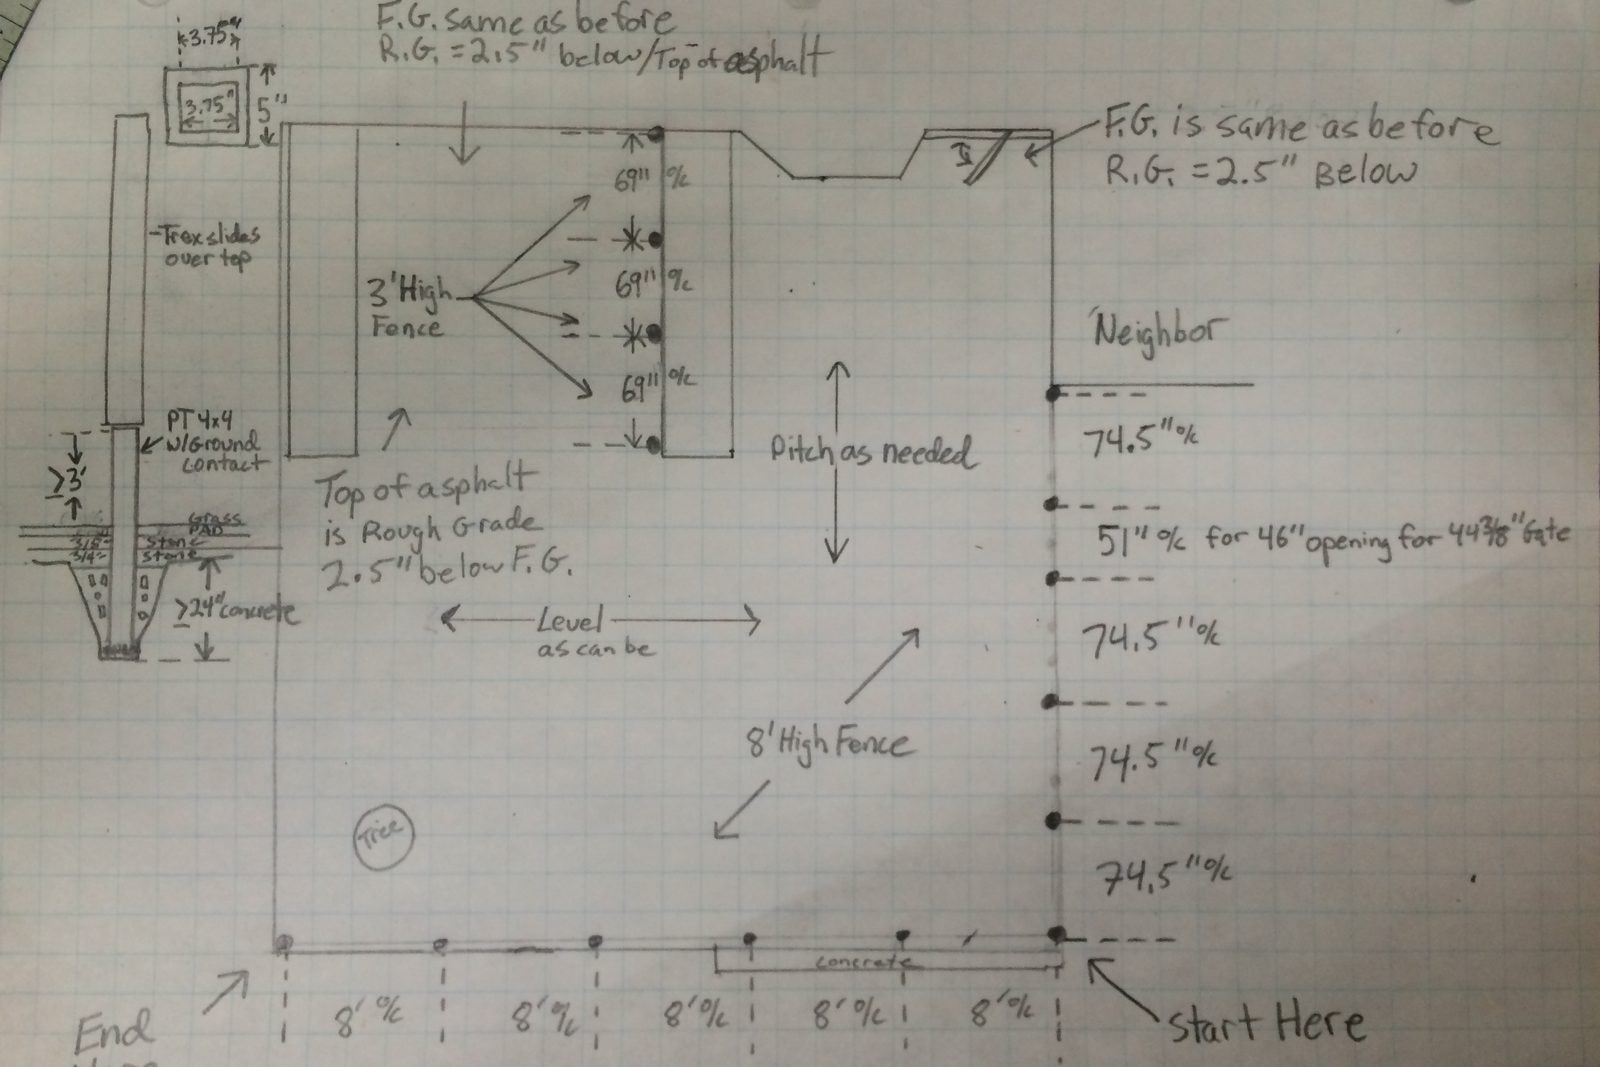 F.G. same as before
R.G. = 2.5" below/Top of asphalt
3.75"
3.75"
5"
F.G. is same as before
R.G. = 2.5" Below
69" o/c
Trex slides
over top
69" o/c
3' High
Fence
Neighbor
69" o/c
PT 4x4
w/Ground
contact
≥3'
74.5" o/c
Pitch as needed
Top of asphalt
is Rough Grade
2.5" below F.G.
Grass
PAD
3/8" stone
3/4" stone
51" o/c for 46" opening for 44 3/8" Gate
≥24" concrete
Level
as can be
74.5" o/c
8' High Fence
74.5" o/c
Tree
74.5" o/c
concrete
End
8' o/c 8' o/c 8' o/c 8' o/c 8' o/c
Start Here